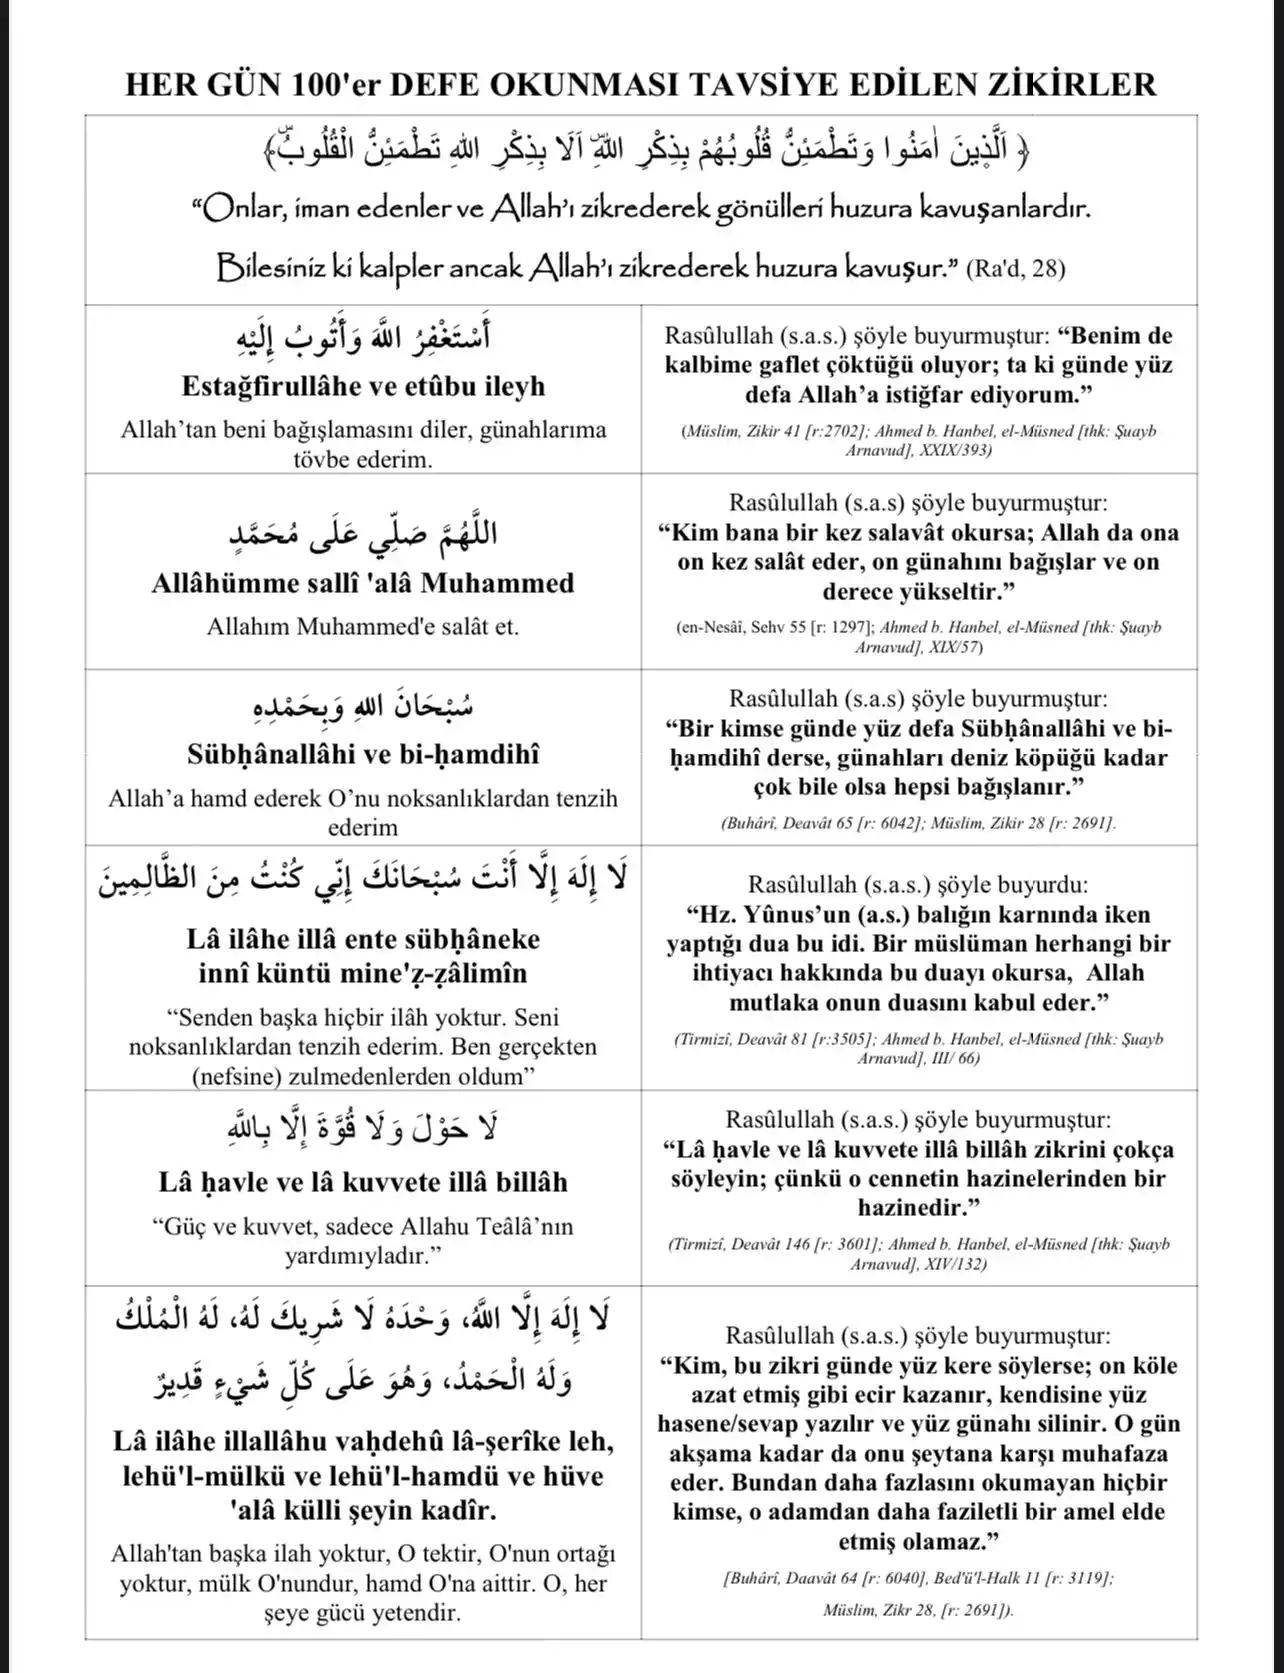 HER GÜN 100'er DEFE OKUNMASI TAVSİYE EDİLEN ZİKİRLER
﴿ اَلَّذ۪ينَ اٰمَنُوا وَتَطْمَئِنُّ قُلُوبُهُمْ بِذِكْرِ اللّٰهِۜ اَلَا بِذِكْرِ اللّٰهِ تَطْمَئِنُّ الْقُلُوبُۜ﴾
“Onlar, iman edenler ve Allah’ı zikrederek gönülleri huzura kavuşanlardır.
Bilesiniz ki kalpler ancak Allah’ı zikrederek huzura kavuşur.” (Ra'd, 28)
أَسْتَغْفِرُ اللَّهَ وَأَتُوبُ إِلَيْهِ
Estağfirullâhe ve etûbu ileyh
Allah’tan beni bağışlamasını diler, günahlarıma
tövbe ederim.
Rasûlullah (s.a.s.) şöyle buyurmuştur: “Benim de
kalbime gaflet çöktüğü oluyor; ta ki günde yüz
defa Allah’a istiğfar ediyorum.”
(Müslim, Zikir 41 [r:2702]; Ahmed b. Hanbel, el-Müsned [thk: Şuayb
Arnavud], XXIX/393)
اللَّهُمَّ صَلِّي عَلَى مُحَمَّدٍ
Allâhümme sallî 'alâ Muhammed
Allahım Muhammed'e salât et.
Rasûlullah (s.a.s) şöyle buyurmuştur:
“Kim bana bir kez salavât okursa; Allah da ona
on kez salât eder, on günahını bağışlar ve on
derece yükseltir.”
(en-Nesâî, Sehv 55 [r: 1297]; Ahmed b. Hanbel, el-Müsned [thk: Şuayb
Arnavud], XIX/57)
سُبْحَانَ اللهِ وَبِحَمْدِهِ
Sübḥânallâhi ve bi-ḥamdihî
Allah’a hamd ederek O’nu noksanlıklardan tenzih
ederim
Rasûlullah (s.a.s) şöyle buyurmuştur:
“Bir kimse günde yüz defa Sübḥânallâhi ve bi-
ḥamdihî derse, günahları deniz köpüğü kadar
çok bile olsa hepsi bağışlanır.”
(Buhârî, Deavât 65 [r: 6042]; Müslim, Zikir 28 [r: 2691].
لَا إِلَهَ إِلَّا أَنْتَ سُبْحَانَكَ إِنِّي كُنْتُ مِنَ الظَّالِمِينَ
Lâ ilâhe illâ ente sübḥâneke
innî küntü mine'ẓ-ẓâlimîn
“Senden başka hiçbir ilâh yoktur. Seni
noksanlıklardan tenzih ederim. Ben gerçekten
(nefsine) zulmedenlerden oldum”
Rasûlullah (s.a.s.) şöyle buyurdu:
“Hz. Yûnus’un (a.s.) balığın karnında iken
yaptığı dua bu idi. Bir müslüman herhangi bir
ihtiyacı hakkında bu duayı okursa, Allah
mutlaka onun duasını kabul eder.”
(Tirmizî, Deavât 81 [r:3505]; Ahmed b. Hanbel, el-Müsned [thk: Şuayb
Arnavud], III/ 66)
لَا حَوْلَ وَلَا قُوَّةَ إِلَّا بِاللَّهِ
Lâ ḥavle ve lâ kuvvete illâ billâh
“Güç ve kuvvet, sadece Allahu Teâlâ’nın
yardımıyladır.”
Rasûlullah (s.a.s.) şöyle buyurmuştur:
“Lâ ḥavle ve lâ kuvvete illâ billâh zikrini çokça
söyleyin; çünkü o cennetin hazinelerinden bir
hazinedir.”
(Tirmizî, Deavât 146 [r: 3601]; Ahmed b. Hanbel, el-Müsned [thk: Şuayb
Arnavud], XIV/132)
لَا إِلَهَ إِلَّا اللَّهُ، وَحْدَهُ لَا شَرِيكَ لَهُ، لَهُ الْمُلْكُ
وَلَهُ الْحَمْدُ، وَهُوَ عَلَى كُلِّ شَيْءٍ قَدِيرٌ
Lâ ilâhe illallâhu vaḥdehû lâ-şerîke leh,
lehü'l-mülkü ve lehü'l-hamdü ve hüve
'alâ külli şeyin kadîr.
Allah'tan başka ilah yoktur, O tektir, O'nun ortağı
yoktur, mülk O'nundur, hamd O'na aittir. O, her
şeye gücü yetendir.
Rasûlullah (s.a.s.) şöyle buyurmuştur:
“Kim, bu zikri günde yüz kere söylerse; on köle
azat etmiş gibi ecir kazanır, kendisine yüz
hasene/sevap yazılır ve yüz günahı silinir. O gün
akşama kadar da onu şeytana karşı muhafaza
eder. Bundan daha fazlasını okumayan hiçbir
kimse, o adamdan daha faziletli bir amel elde
etmiş olamaz.”
[Buhârî, Daavât 64 [r: 6040], Bed'ü'l-Halk 11 [r: 3119];
Müslim, Zikr 28, [r: 2691]).